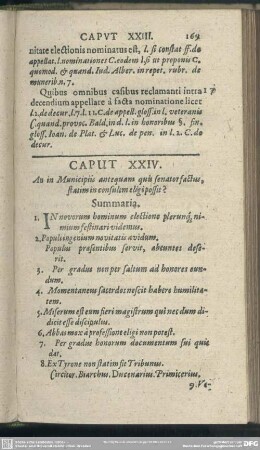 CAPVT XXIII. 169
nitate electionis nominatus est, l. si constat ff. de
appellat. l. nominationes C. eodem l. si ut proponis C.
quomod. & quand. Iud. Alber. in repet. rubr. de
munerib. n. 7.
Quibus omnibus casibus reclamanti intra 17
decendium appellare à facta nominatione licet
l. 2. de decur. l. 17. l. 11. C. de appell. gloss. in l. veteranis
C. quand. provoc. Bald. ind. l. in honoribus §. fin.
gloss. Ioan. de Plat. & Luc. de pen. in l. 2. C. de
decur.
CAPUT XXIV.
An in Municipiis antequam quis senator factus,
statim in consulem eligi possit?
Summaria.
1. IN novorum hominum electione plerunq; ni-
mium festinari videmus.
2. Populi ingenium novitatis avidum.
Populus præsentibus servit, absentes dese-
rit.
3. Per gradus non per saltum ad honores eun-
dum.
4. Momentaneus sacerdos nescit habere humilita-
tem.
5. Miserum est eum fieri magistrum qui nec dum di-
dicit esse discipulus.
6. Abbas mox à professione eligi non potest.
7. Per gradus honorum documentum sui quis
dat.
8. Ex Tyrone non statim fit Tribunus.
Circitor. Biarchus. Ducenarius. Primicerius,
9. Ve-